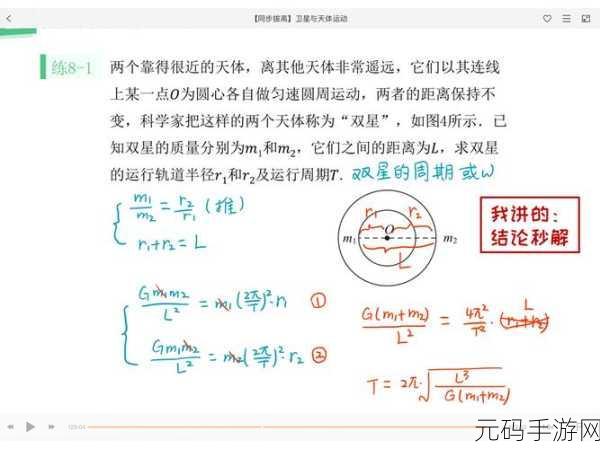 【同步拔高】卫星与天体运动
练8-1
两个靠得很近的天体，离其他天体非常遥远，它们以其连线
上某一点O为圆心各自做匀速圆周运动，两者的距离保持不
变，科学家把这样的两个天体称为“双星”，如图4所示．已
知双星的质量分别为m₁和m₂，它们之间的距离为L，求双星
的运行轨道半径r₁和r₂及运行周期T．双星的周期或ω
m₁/m₂ = r₂/r₁（推）
r₁+r₂=L
r₁ r₂
m₁ O m₂
L
我讲的：
结论秒解
Gm₁m₂/L² = m₁(2π/T)²·r₁ ①
Gm₁m₂/L² = m₂(2π/T)²·r₂ ②
G(m₁+m₂)/L² = 4π²/T²·(r₁+r₂) L
T=2π·√(L³/G(m₁+m₂))
元码手游网